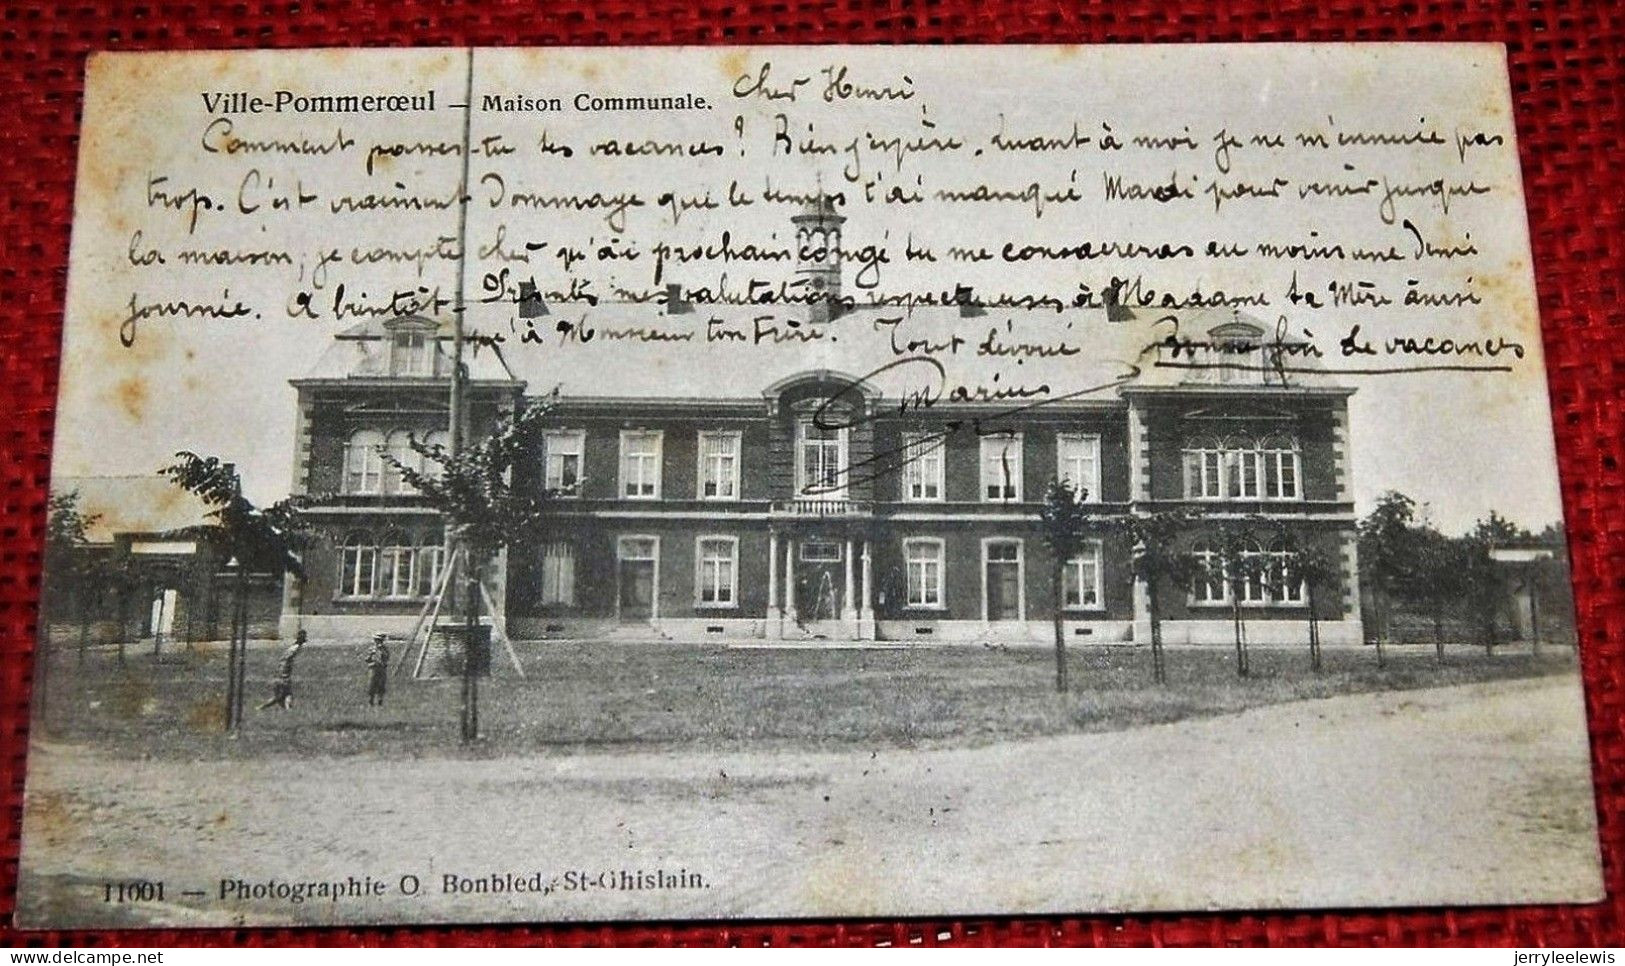 Ville-Pommerœul — Maison Communale. Cher Henri,
Comment passes-tu tes vacances? Bien j'espère. Quant à moi je ne m'ennuie pas
trop. C'est vraiment Dommage que le temps t'ai manqué Mardi pour venir jusque
la maison, je compte cher qu'ai prochain congé tu me consacreras au moins une demi
journée. A bientôt - Présentes mes salutations respectueuses à Madame ta Mère ainsi
qu'à Monsieur ton Frère. Tout dévoué Bonne fin de vacances
Marius
11001 — Photographie O. Bonbled, St-Ghislain.
jerryleelewis